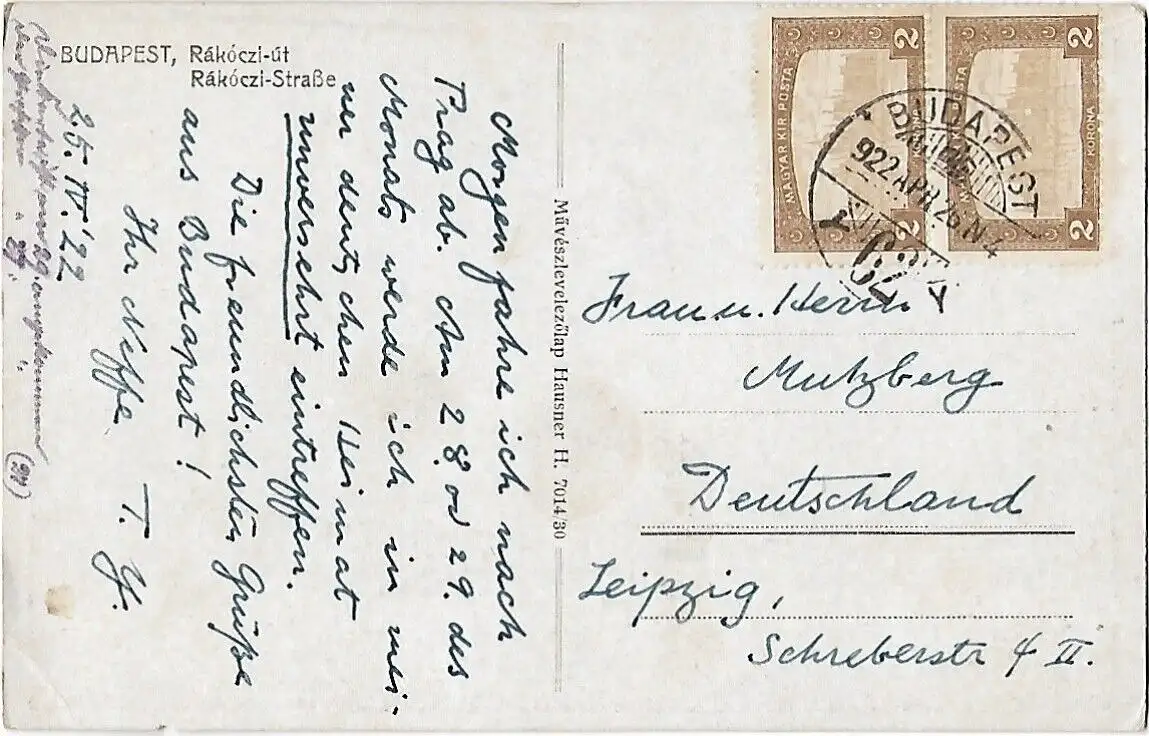 BUDAPEST, Rákóczi-út
Rákóczi-Straße
25. IV. '22
Morgen fahre ich nach
Prag ab. Am 28. od 29. des
Monats werde ich in mei-
ner deutschen Heimat
unversehrt eintreffen.
Die freundlichsten Grüße
aus Budapest!
Ihr Neffe
T. H.
Művészlevelezőlap Hausner H. 7014/30
MAGYAR KIR. POSTA
2 KORONA 2
MAGYAR KIR. POSTA
2 KORONA 2
BUDAPEST
922 APR 26 N 4
62
Frau u. Herrn
Mutzberg
Deutschland
Leipzig,
Schreberstr 4 II.